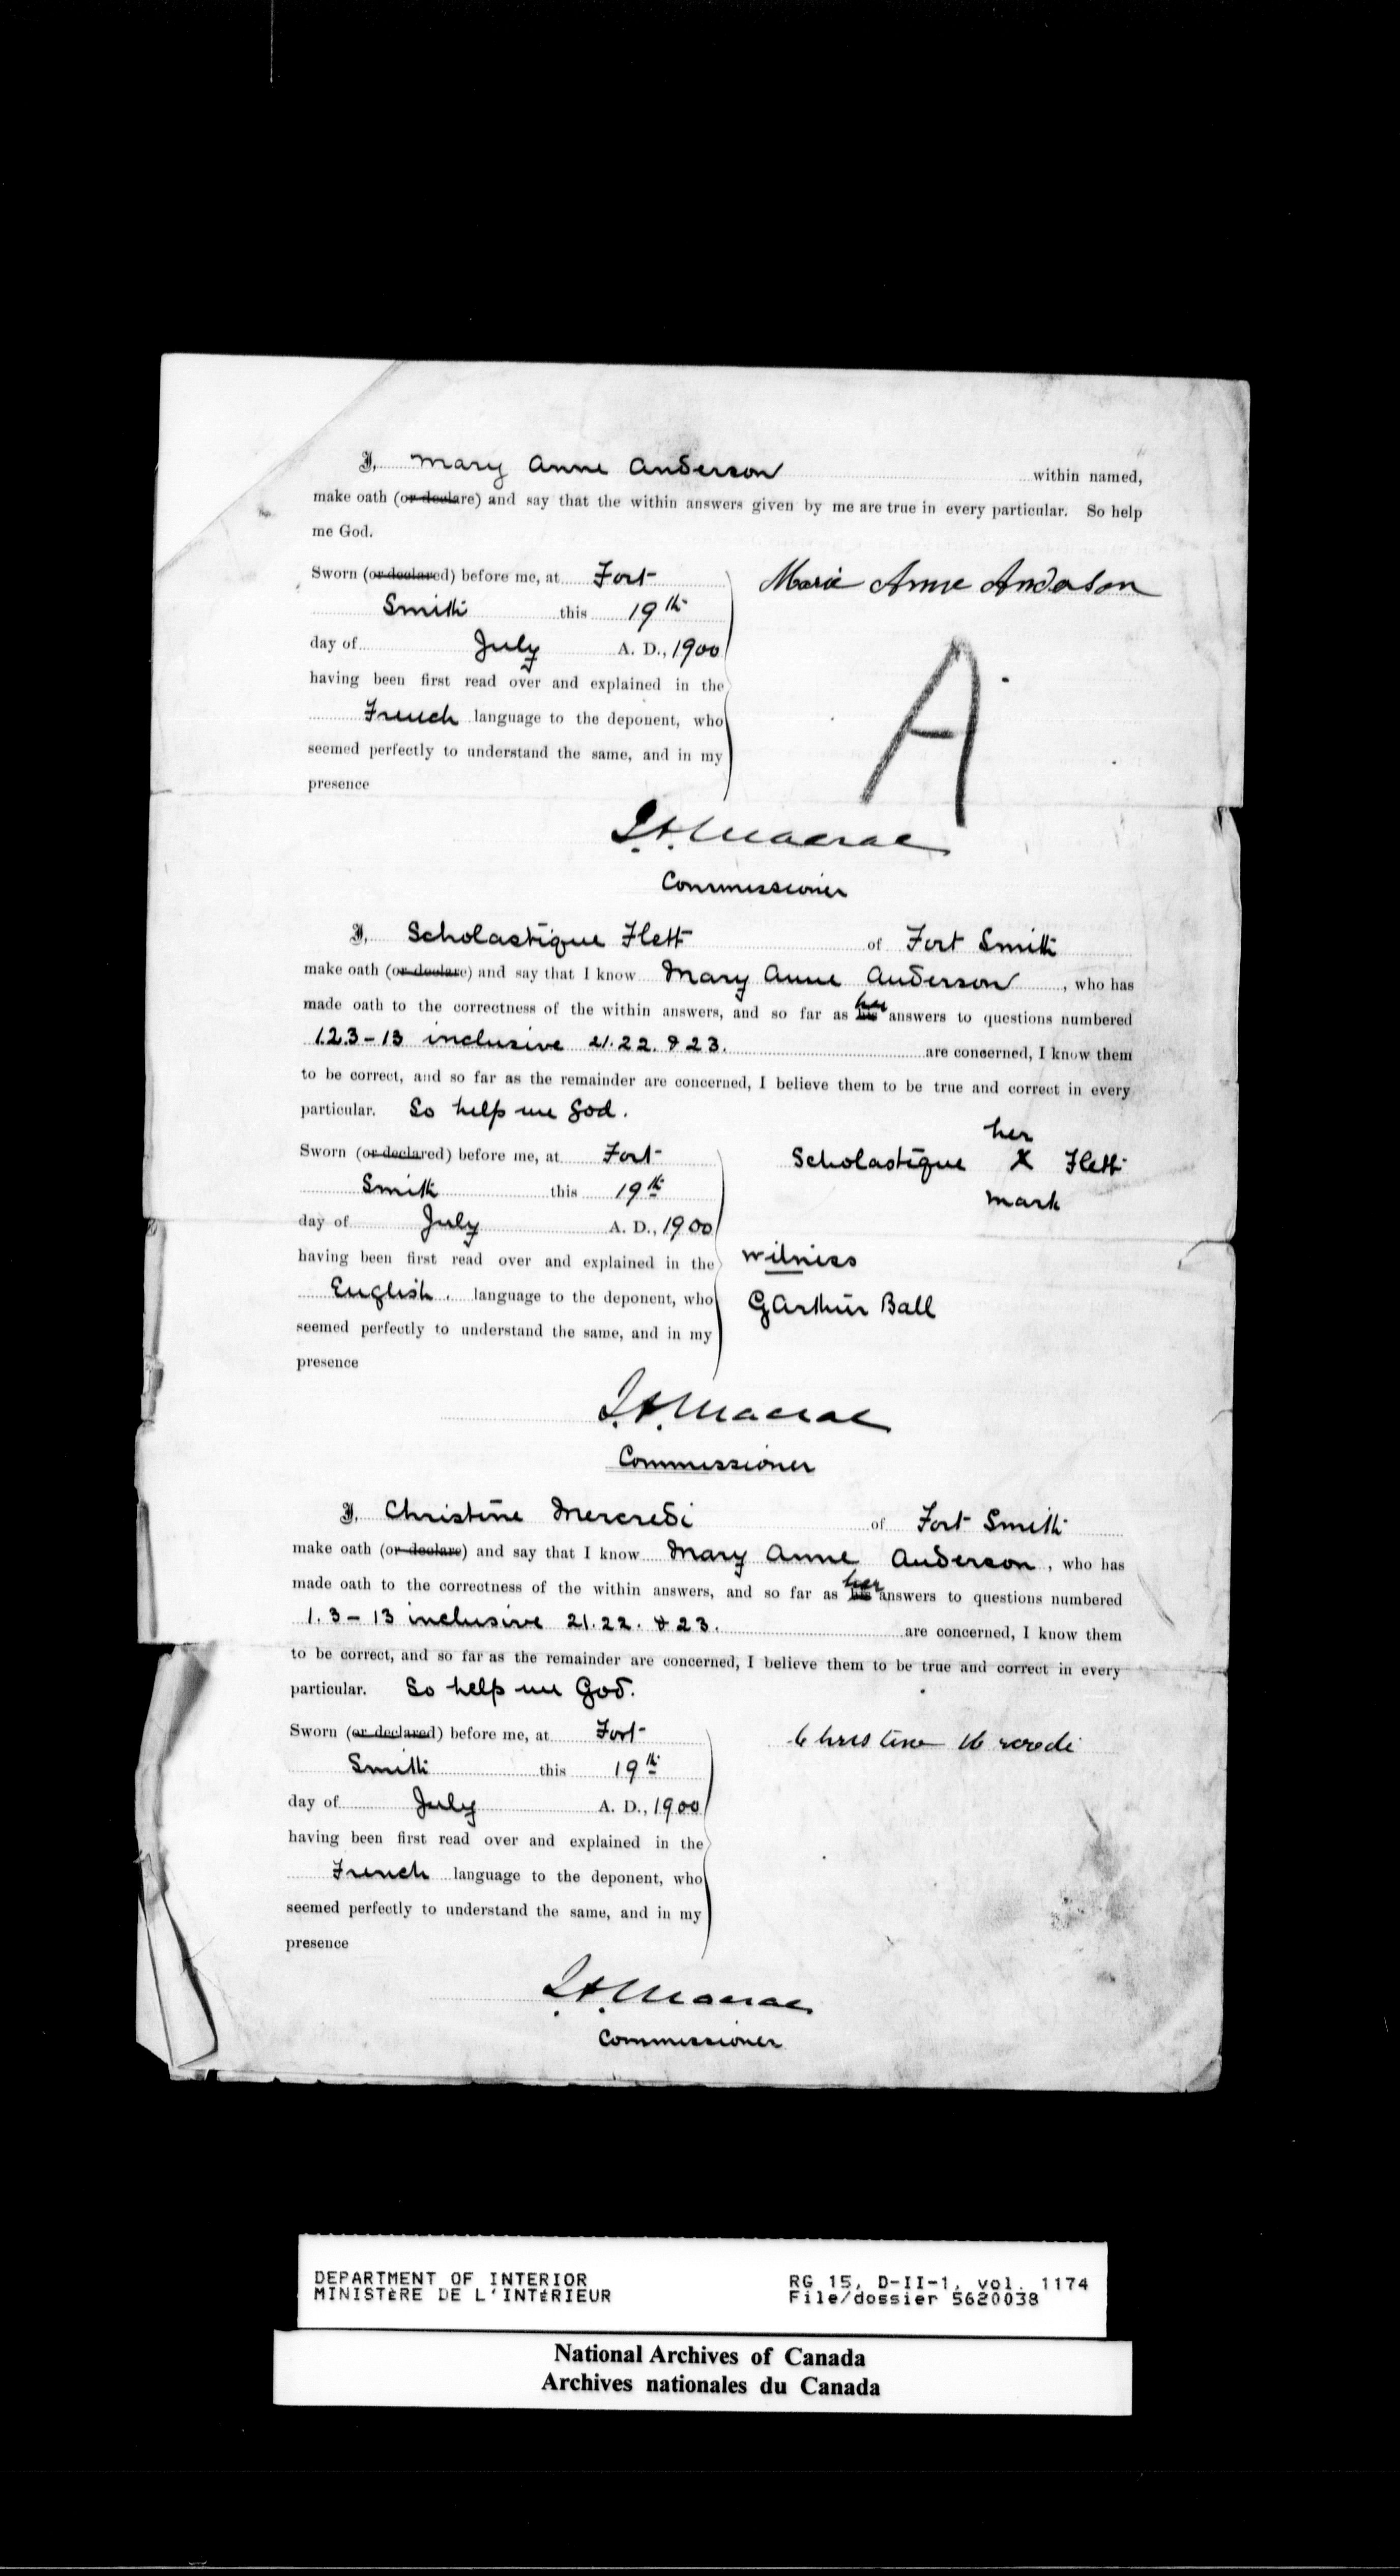 I, Mary Anne Anderson within named,
make oath (or declare) and say that the within answers given by me are true in every particular. So help
me God.
Sworn (or declared) before me, at Fort
Smith this 19th
day of July A. D., 1900
having been first read over and explained in the
French language to the deponent, who
seemed perfectly to understand the same, and in my
presence
Marie Anne Anderson
A
J.A. Macrae
Commissioner
I, Scholastique Flett of Fort Smith
make oath (or declare) and say that I know Mary Anne Anderson, who has
made oath to the correctness of the within answers, and so far as his her answers to questions numbered
1.2.3-13 inclusive 21.22. & 23. are concerned, I know them
to be correct, and so far as the remainder are concerned, I believe them to be true and correct in every
particular. So help me God.
Sworn (or declared) before me, at Fort
Smith this 19th
day of July A. D., 1900
having been first read over and explained in the
English. language to the deponent, who
seemed perfectly to understand the same, and in my
presence
her
Scholastique X Flett
mark
witness
G Arthur Ball
J.A. Macrae
Commissioner
I, Christine Mercredi of Fort Smith
make oath (or declare) and say that I know Mary Anne Anderson, who has
made oath to the correctness of the within answers, and so far as his her answers to questions numbered
1. 3-13 inclusive 21.22. & 23. are concerned, I know them
to be correct, and so far as the remainder are concerned, I believe them to be true and correct in every
particular. So help me God.
Sworn (or declared) before me, at Fort
Smith this 19th
day of July A. D., 1900
having been first read over and explained in the
French language to the deponent, who
seemed perfectly to understand the same, and in my
presence
Christine Mercredi
J.A. Macrae
Commissioner
DEPARTMENT OF INTERIOR RG 15, D-II-1, vol. 1174
MINISTÈRE DE L'INTÉRIEUR File/dossier 5620038
National Archives of Canada
Archives nationales du Canada